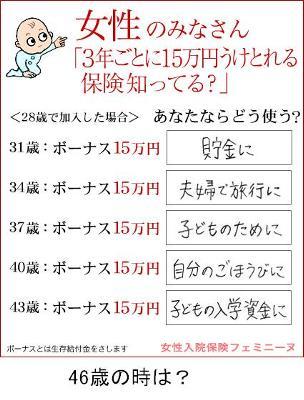 女性のみなさん
「3年ごとに15万円うけとれる
保険知ってる？」
＜28歳で加入した場合＞ あなたならどう使う？
31歳：ボーナス15万円 貯金に
34歳：ボーナス15万円 夫婦で旅行に
37歳：ボーナス15万円 子どものために
40歳：ボーナス15万円 自分のごほうびに
43歳：ボーナス15万円 子どもの入学資金に
ボーナスとは生存給付金をさします 女性入院保険フェミニーヌ
46歳の時は？